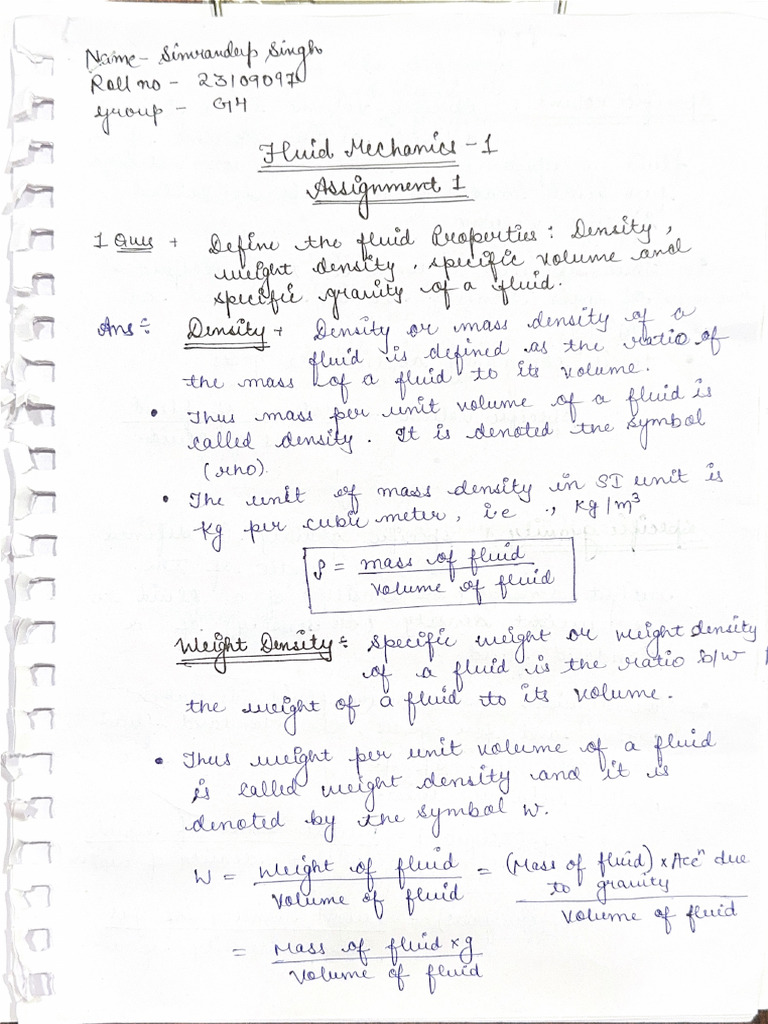 Name - Simrandeep Singh
Roll no - 23109097
Group - G14
Fluid Mechanics - 1
Assignment 1
1 Ques + Define the fluid Properties : Density,
weight density, specific volume and
specific gravity of a fluid.
Ans : Density + Density or mass density of a
fluid is defined as the ratio of
the mass of a fluid to its volume.
• Thus mass per unit volume of a fluid is
called density. It is denoted the symbol
(rho).
• The unit of mass density in SI unit is
Kg per cubic meter, i.e., Kg/m³
ρ = mass of fluid
volume of fluid
Weight Density : Specific weight or weight density
of a fluid is the ratio b/w
the weight of a fluid to its volume.
• Thus weight per unit volume of a fluid
is called weight density and it is
denoted by the symbol w.
W = Weight of fluid = (Mass of fluid) × Accⁿ due
to gravity
Volume of fluid Volume of fluid
= Mass of fluid × g
Volume of fluid